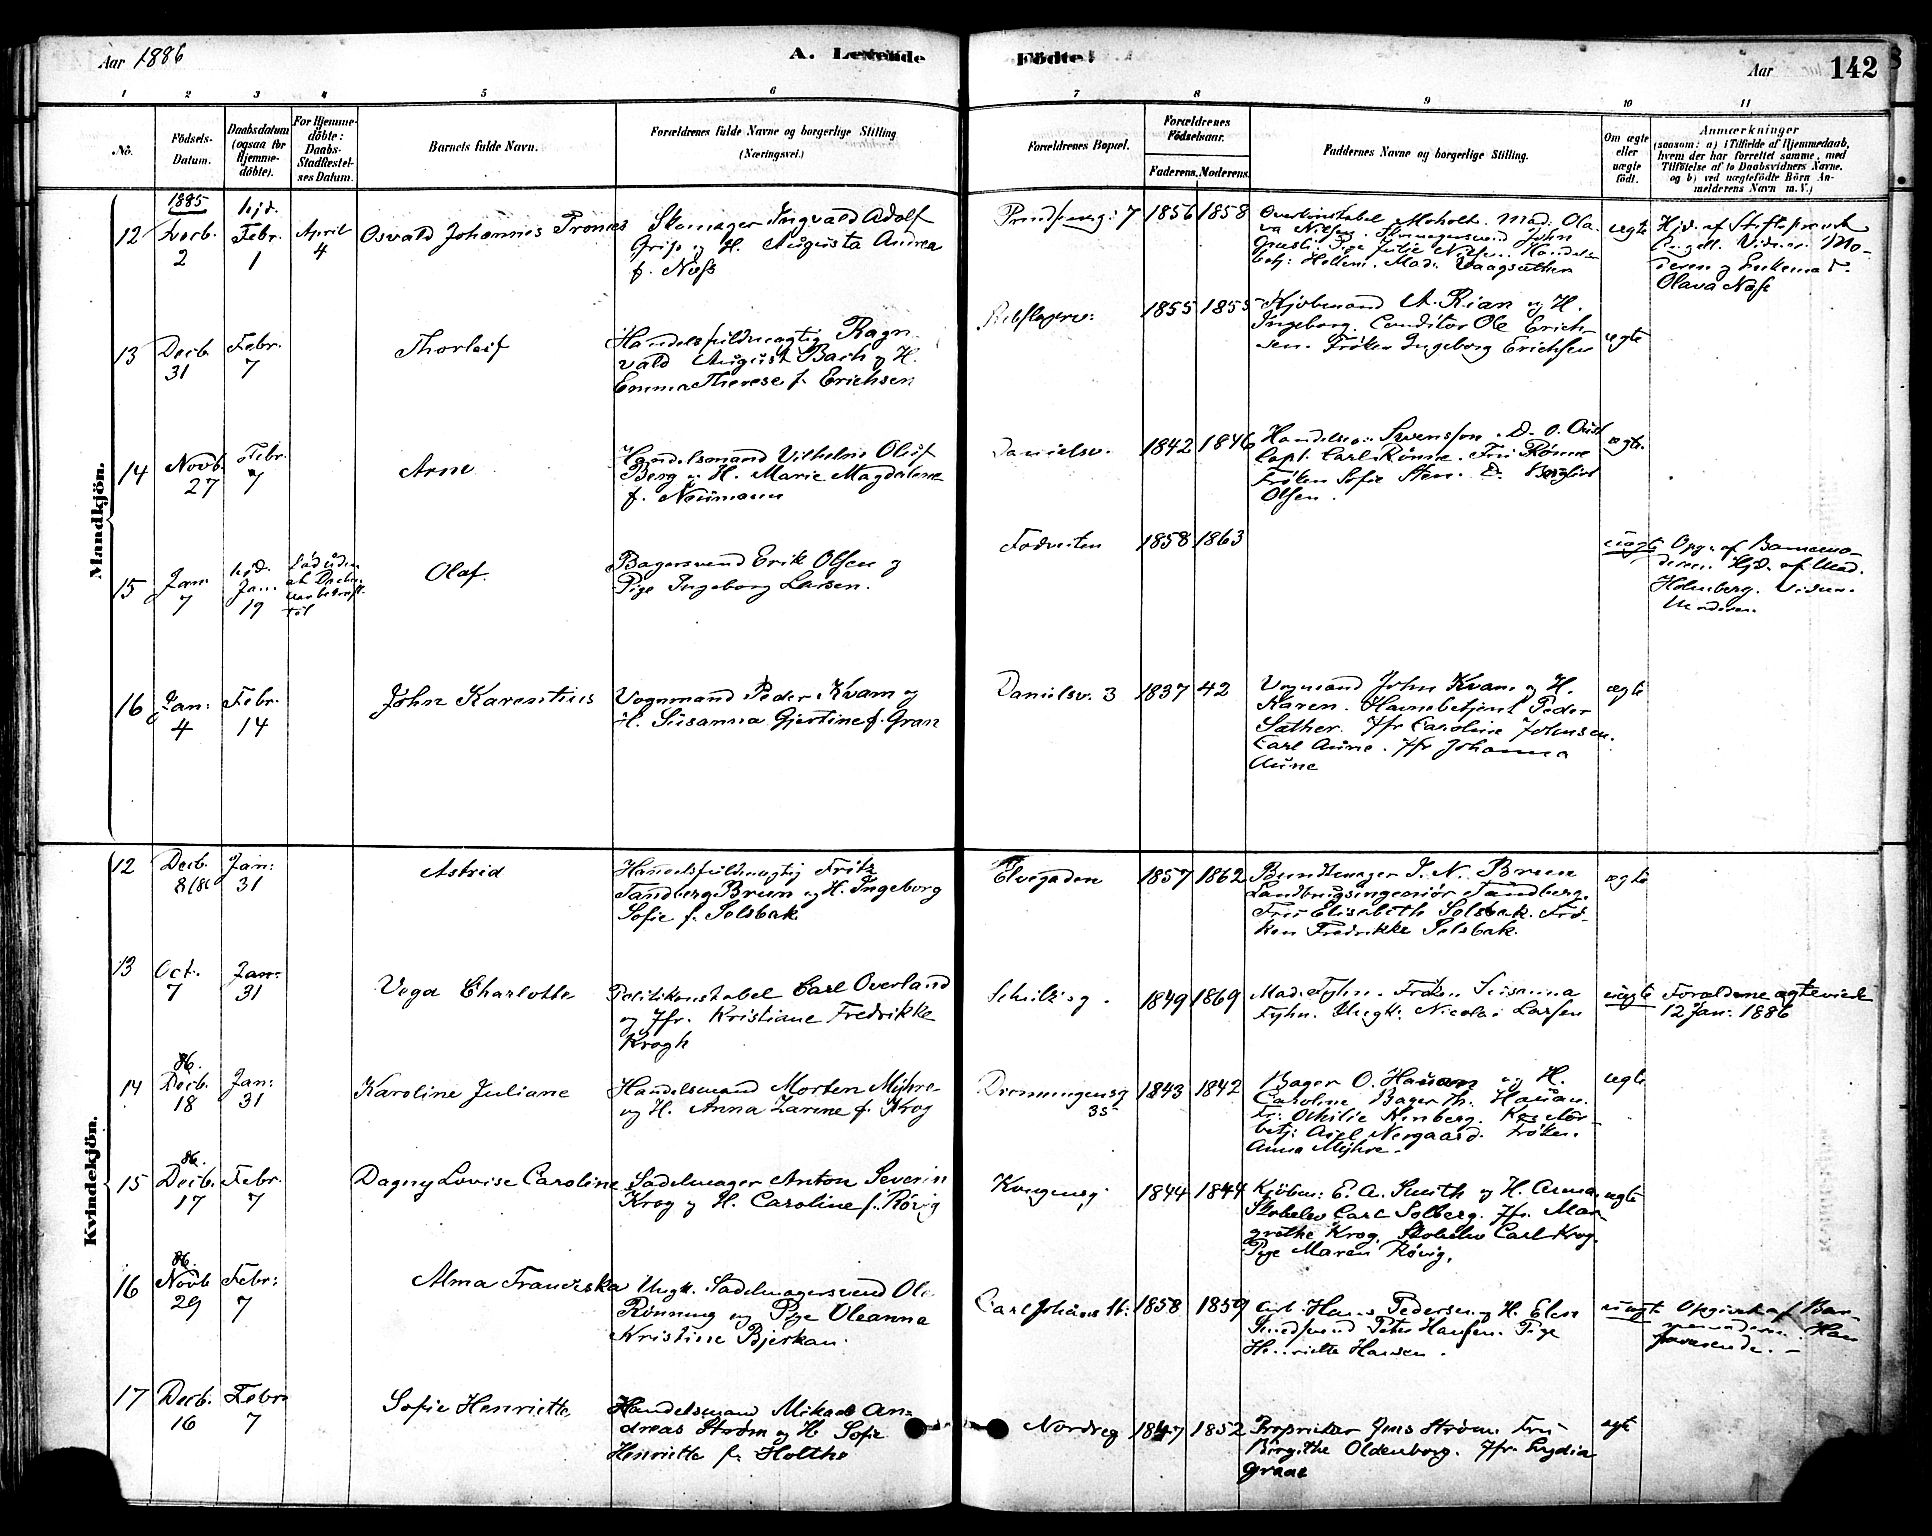 Aar 1886
A. Levende
Födte.
Aar
142
1 2 3 4 5 6 7 8 9 10 11
No.
Födsels-
Datum.
Daabsdatum
(ogsaa for
Hjemme-
döbte).
For Hjemme-
döbte:
Daabs-
Stadfæstel-
ses Datum.
Barnets fulde Navn.
Forældrenes fulde Navne og borgerlige Stilling
(Næringsvei.)
Forældrenes Bopæl.
Forældrenes
Födselsaar.
Faderens. Moderens.
Faddernes Navne og borgerlige Stilling.
Om ægte
eller
uægte
födt.
Anmærkninger
(saasom: a) i Tilfælde af Hjemmedaab,
hvem der har forrettet samme, med
Tilföielse af to Daabsvidners Navne.
og b) ved uægtefödte Börn An-
melderens Navn m. V.)
Mandkjön.
12
1885
Decb.
2
hjd.
Febr.
1
April
4
Osvald Johannes Tronæs
Skomager Ingvald Adolf
Grip og H. Augusta Andrea
f. Næss
1856 1858
Overkonstabel Moholt. Mad. Ola-
va Nilsen. Skomagersvend John
ægte
deren og Enkemad.
Olava Næss
13
Decb.
31
Febr.
7
Thorleif
Handelsfuldmægtig Ragn
vald August Bach og H.
Emma Therese f. Erichsen
Rebslagerv:
1855 1855
Kjöbmand A. Rian og H.
Ingeborg. Conditor Ole Erich-
sen. Fröken Ingeborg Erichsen
ægte
14
Novb.
27
Febr.
7
Arne
Handelsmand Vilhelm Oluf
Berg og H. Marie Magdalene
f. Neumann
Danielsv.
1842 1846
Capt. Carl Rönne. Fru Rönne
Fröken Sofie
Olsen.
ægte
15
Jan:
7
hjd.
Jan.
19
Död uden
at Daaben
var bekræft-
tet
Olaf.
Bagersvend Erik Olsen og
Pige Ingeborg Larsen.
Fodveiten
1858 1863
uægte
Opg. af Barnemo-
deren. Hjd. af Mad.
Holmberg. Vidne:
Moderen.
16
Jan:
4
Febr.
14
John Karentius
Vognmand Peder Kvam og
H. Susanna Gjertine f. Gran
Danielsv. 3
1837 42
Vognmand John Kvam og H.
Karen. Havnebetjent Peder
Sæther. Jfr Caroline Johnsen.
Carl Aune. Jfr Johanna
Aune
ægte
Kvindekjön.
12
Decb.
8
Jan:
31
Astrid
Handelsfuldmægtig Fritz
Tandberg Bruun og H. Ingeborg
Sofie f. Solsbak
Elvegaden
1857 1862
Bundtmager J. N. Bruun
Landbrugsingeniör Tandberg.
Fru Elisabeth Solsbak. Frö-
ken Fredrikke Solsbak.
ægte
13
Oct.
7
Jan:
31
Vega Charlotte
Politikonstabel Carl Overland
og Jfr. Kristiane Fredrikke
Krogh
Schultzsg.
1849 1869
Mad. Fyhn. Fröken Susanna
Fyhn. Ungk: Nicolai Larsen
uægte
Forældrene ægteviede
12 Jan: 1886
14
86.
Decb.
18
Jan:
31
Karoline Juliane
Handelsmand Morten Myhre
og H. Anna Zarine f. Krog
Dronningensg
35
1843 1842
Bager O. Hauan og H.
Caroline Bager Th. Hauan.
Othilie Kinberg. Kontor-
betj: Axel Nergaard. Fröken
Anna Myhre.
ægte
15
86.
Decb.
17
Febr.
7
Dagny Lovise Caroline
Sadelmager Anton Severin
Krog og H. Caroline f. Rövig
Kongensg:
1844 1844
Kjöbm: E. A. Smith og H. Anna.
Skoelev Carl Solberg. Jfr. Mar-
grethe Krog. Skoelev Carl Krog.
Pige Maren Rövig.
ægte
16
86.
Novb
29
Febr:
7
Alma Franziska
Ungk. Sadelmagersvend Ole
Rönning og Pige Oleanna
Kristine Bjerkan.
Carl Johans St:
1858 1859
Arb. Hans Pedersen og H. Elen
Smedsvend Peter Hansen. Pige
Henriette Hansen.
uægte
Opgivet af Bar-
nemoderen. Han
fraværende.
17
Decb.
16
Febr.
7
Sofie Henriette
Handelsmand Mikael An-
dreas Ström og H. Sofie
Henriette f. Holthe
Nordreg
1847 1852
Proprietær Jens Ström. Fru
Birgithe Oldenborg. Jfr. Lydia
Graae
ægte